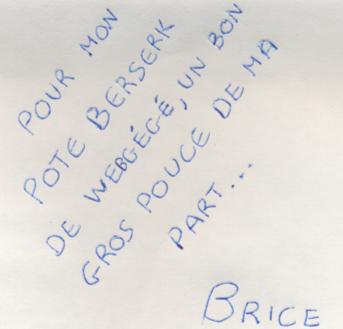 POUR MON
POTE BERSERK
DE WEBGÉGÉ, UN BON
GROS POUCE DE MA
PART...
BRICE